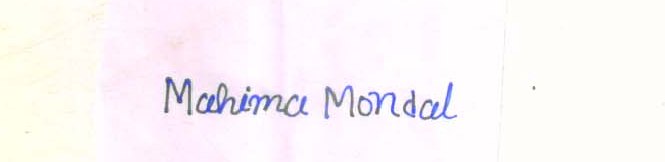 Mahima Mondal